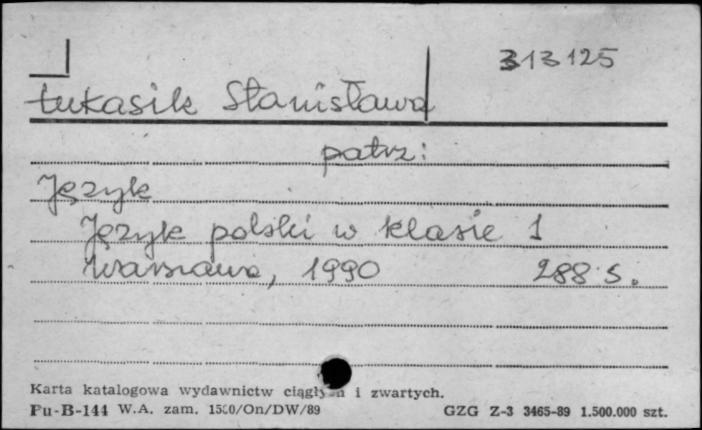 313125
Łukasik Stanisława
patrz:
Język
Język polski w klasie 1
Warszawa, 1990 288 s.
Karta katalogowa wydawnictw ciągłych i zwartych.
Pu-B-144 W.A. zam. 1500/On/DW/89 GZG Z-3 3465-89 1.500.000 szt.